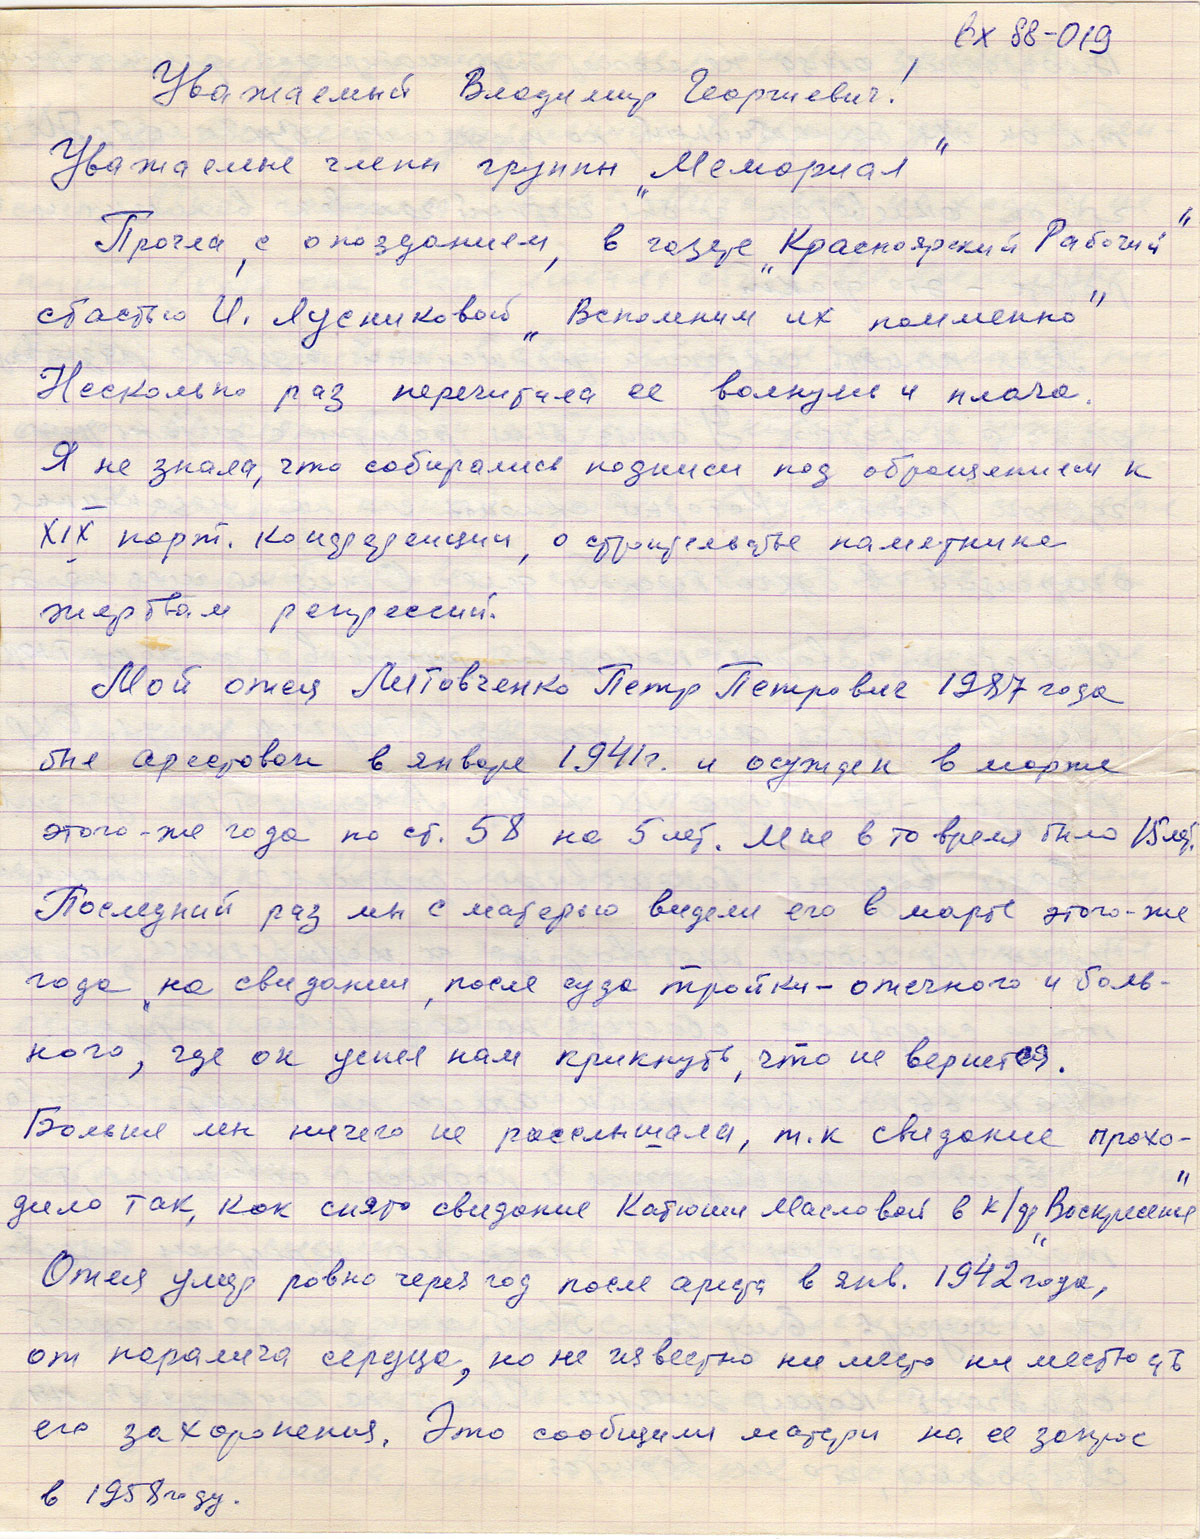 вх 88-019
Уважаемый Владимир Георгиевич!
Уважаемые члены группы „Мемориал"
Прочла, с опозданием, в газете „Красноярский Рабочий"
статью И. Лусниковой „Вспомним их поименно"
Несколько раз перечитала ее волнуясь и плача.
Я не знала, что собирались подписи под обращением к
XIX парт. конференции, о строительстве памятника
жертвам репрессий.
Мой отец Литовченко Петр Петрович 1987 года
был арестован в январе 1941г. и осужден в марте
этого-же года по ст. 58 на 5 лет. Мне в то время было 15 лет.
Последний раз мы с матерью видели его в марте этого-же
года, на свидании, после суда тройки – отечного и боль-
ного, где он успел нам крикнуть, что не вернется.
Больше мы ничего не расслышали, т.к свидание прохо-
дило так, как снято свидание Катюши Масловой в к/ф „Воскресение"
Отец умер ровно через год после ареста в янв. 1942 года,
от паралича сердца, но не известно ни место ни местность
его захоронения. Это сообщили матери на ее запрос
в 1958 году.